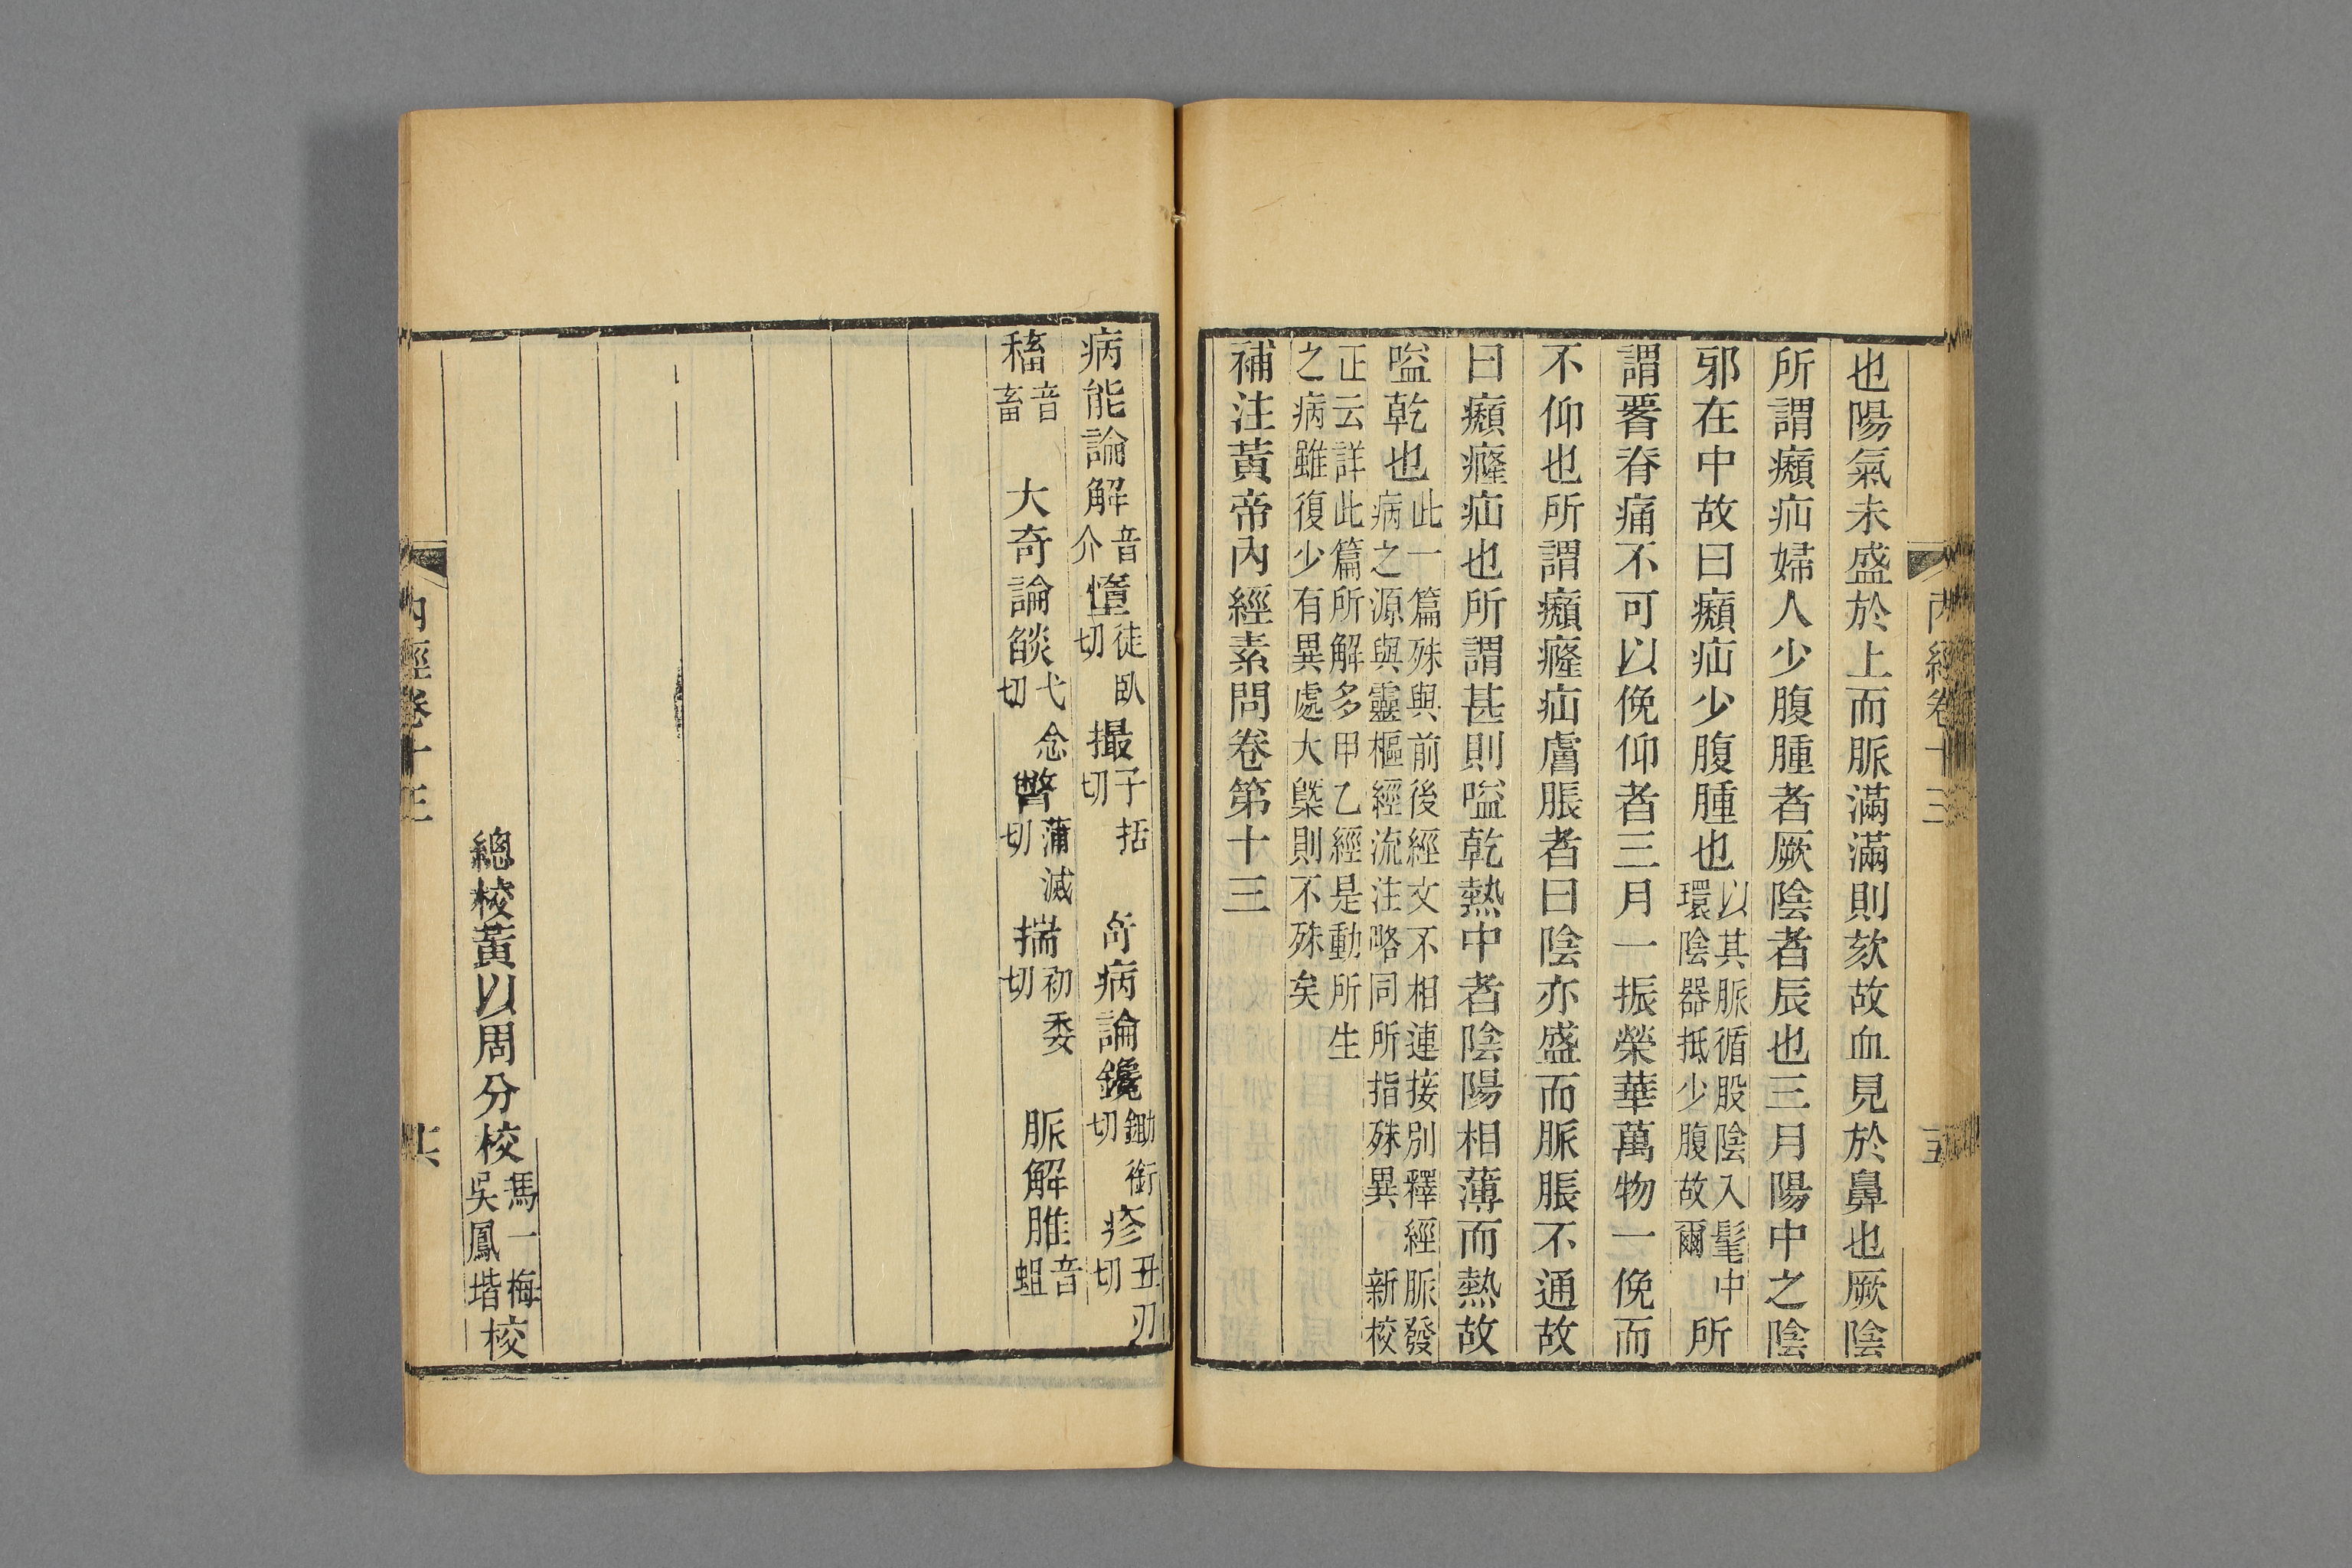 也陽氣未盛於上而脈滿滿則欬故血見於鼻也厥陰
所謂㿗疝婦人少腹腫者厥陰者辰也三月陽中之陰
邪在中故曰㿗疝少腹腫也以其脈循股陰入髦中環陰器抵少腹故爾所
謂𦝫脊痛不可以俛仰者三月一振榮華萬物一俛而
不仰也所謂㿗癃疝膚脹者曰陰亦盛而脈脹不通故
曰㿗癃疝也所謂甚則嗌乾熱中者陰陽相薄而熱故
嗌乾也此一篇殊與前後經文不相連接別釋經脈發病之源與靈樞經流注略同所指殊異 新校
正云詳此篇所解多甲乙經是動所生之病雖復少有異處大槩則不殊矣
補注黃帝內經素問卷第十三
內經卷十三
病能論解音介墮徒臥切撮子括切 奇病論鑱鋤銜切疹丑刃切
稸音畜 大奇論燄弋念切瞥蒲滅切揣初委切 脈解脽音蛆
總校黃以周分校馮一梅吳鳳堦校
內經卷十三